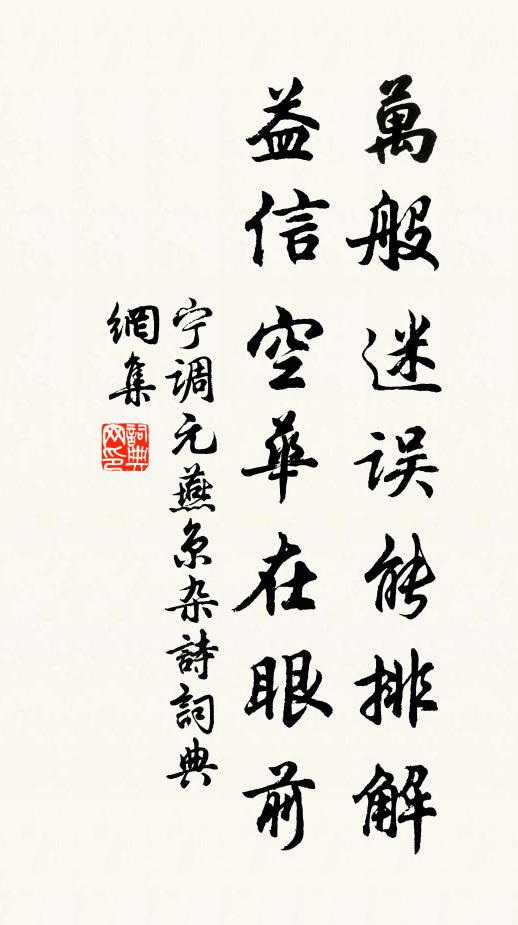 萬般迷误能排解
益信空華在眼前
宁调元燕京杂詩詞典
網集
詞典网印